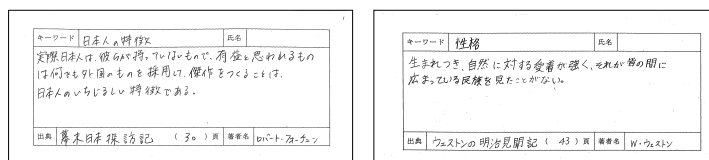 1
キーワード 日本人の特徴 氏名
実際日本人は、彼らが持っていないもので、有益と思われるもの
は何でも外国のものを採用し、傑作をつくることは、
日本人のいちじるしい特徴である。
出典 幕末日本探訪記 (30)頁 著者名 ロバート・フォーチュン
キーワード 性格 氏名
生まれつき、自然に対する愛着が強く、それが皆の間に
広まっている民族を見たことがない。
出典 ウェストンの明治見聞記 (43)頁 著者名 W・ウェストン